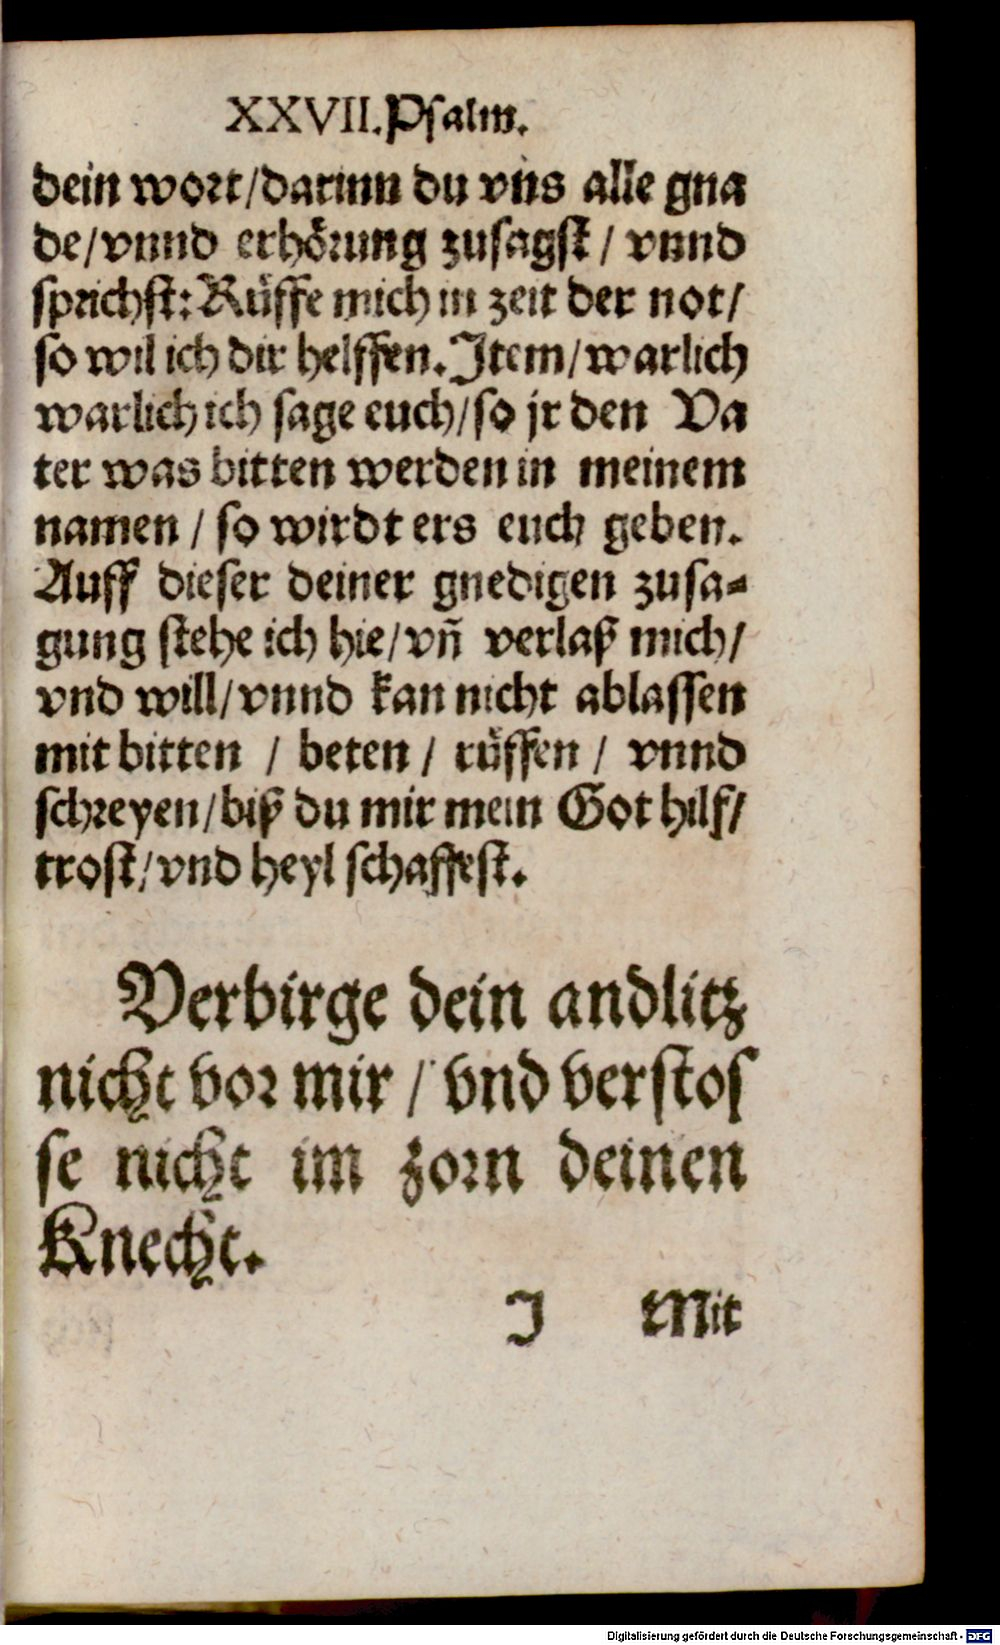 XXVII. Psalm.
dein wort/darinn du vns alle gna
de/vnnd erhörung zusagst / vnnd
sprichst: Rüffe mich in zeit der not/
so wil ich dir helffen. Item/warlich
warlich ich sage euch/so jr den Va
ter was bitten werden in meinem
namen / so wirdt ers euch geben.
Auff dieser deiner gnedigen zusa-
gung stehe ich hie/vñ verlaß mich/
vnd will/vnnd kan nicht ablassen
mit bitten / beten / rüffen / vnnd
schreyen/biß du mir mein Got hilf/
trost/vnd heyl schaffest.
Verbirge dein andlitz
nicht vor mir / vnd verstos
se nicht im zorn deinen
Knecht.
J Mit
Digitalisierung gefördert durch die Deutsche Forschungsgemeinschaft - DFG